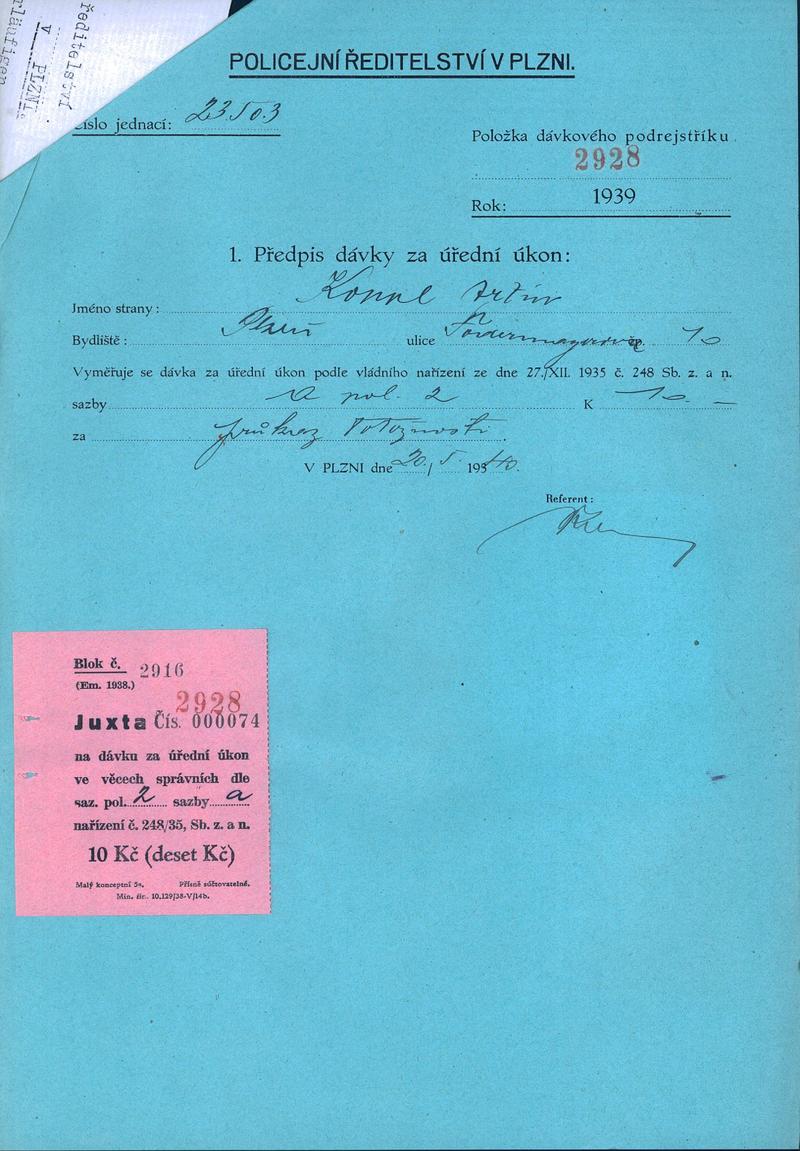 ředitelství
V PLZNI.
POLICEJNÍ ŘEDITELSTVÍ V PLZNI.
Číslo jednací: 23503
Položka dávkového podrejstříku
2928
Rok: 1939
1. Předpis dávky za úřední úkon:
Jméno strany: Artur
Bydliště: Plzeň ulice čp. 10
Vyměřuje se dávka za úřední úkon podle vládního nařízení ze dne 27./XII. 1935 č. 248 Sb. z. a n.
sazby a pol. 2 K 10.–
za průkaz totožnosti.
V PLZNI dne 20./5. 1940.
Referent:
Blok č. 2916
(Em. 1938.)
2928
Juxta Čís. 000074
na dávku za úřední úkon
ve věcech správních dle
saz. pol. 2 sazby a
nařízení č. 248/35, Sb. z. a n.
10 Kč (deset Kč)
Malý konceptní 5a. Přísně súčtovatelné.
Min. fin. 10.129/38-V/14b.